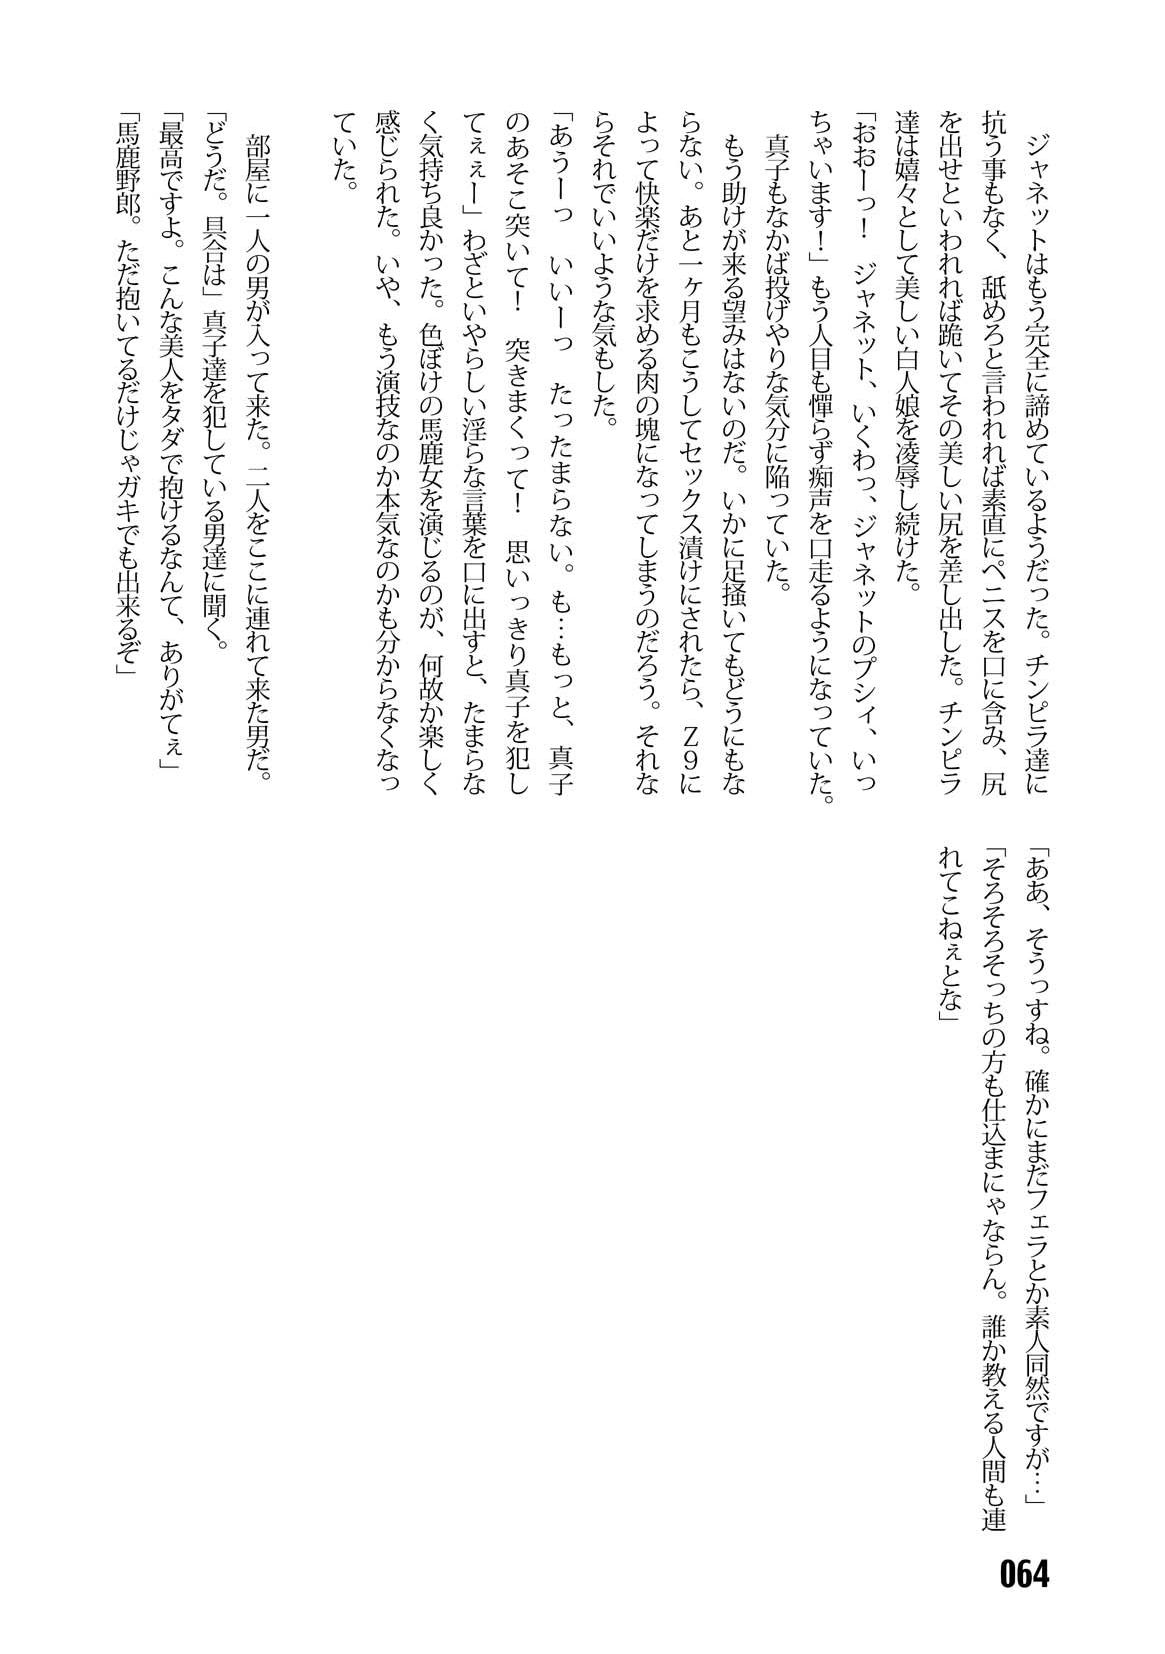 ジャネットはもう完全に諦めているようだった。チンピラ達に
抗う事もなく、舐めろと言われれば素直にペニスを口に含み、尻
を出せといわれれば跪いてその美しい尻を差し出した。チンピラ
達は嬉々として美しい白人娘を凌辱し続けた。
「おおーっ！　ジャネット、いくわっ、ジャネットのプシィ、いっ
ちゃいます！」もう人目も憚らず痴声を口走るようになっていた。
真子もなかば投げやりな気分に陥っていた。
もう助けが来る望みはないのだ。いかに足掻いてもどうにもな
らない。あと一ヶ月もこうしてセックス漬けにされたら、Ｚ９に
よって快楽だけを求める肉の塊になってしまうのだろう。それな
らそれでいいような気もした。
「あうーっ　いいーっ　たったまらない。も…もっと、真子
のあそこ突いて！　突きまくって！　思いっきり真子を犯し
てぇぇー」わざといやらしい淫らな言葉を口に出すと、たまらな
く気持ち良かった。色ぼけの馬鹿女を演じるのが、何故か楽しく
感じられた。いや、もう演技なのか本気なのかも分からなくなっ
ていた。
部屋に一人の男が入って来た。二人をここに連れて来た男だ。
「どうだ。具合は」真子達を犯している男達に聞く。
「最高ですよ。こんな美人をタダで抱けるなんて、ありがてぇ」
「馬鹿野郎。ただ抱いてるだけじゃガキでも出来るぞ」
「ああ、そうっすね。確かにまだフェラとか素人同然ですが…」
「そろそろそっちの方も仕込まにゃならん。誰か教える人間も連
れてこねぇとな」
064